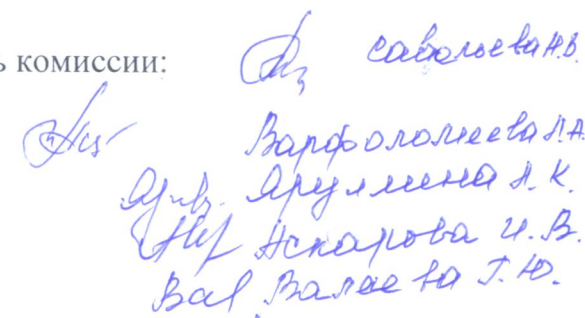 ь комиссии: Савельева Н.В.
Варфоломеева Л.А.
Яруллина А.К.
Аскарова И.В.
Валеева Г.Ю.